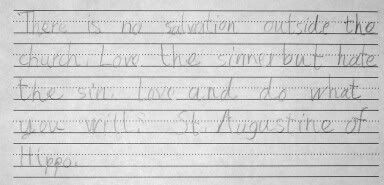 There is no salvation outside the
church. Love the sinner but hate
the sin. Love and do what
you will. St Augustine of
Hippo.